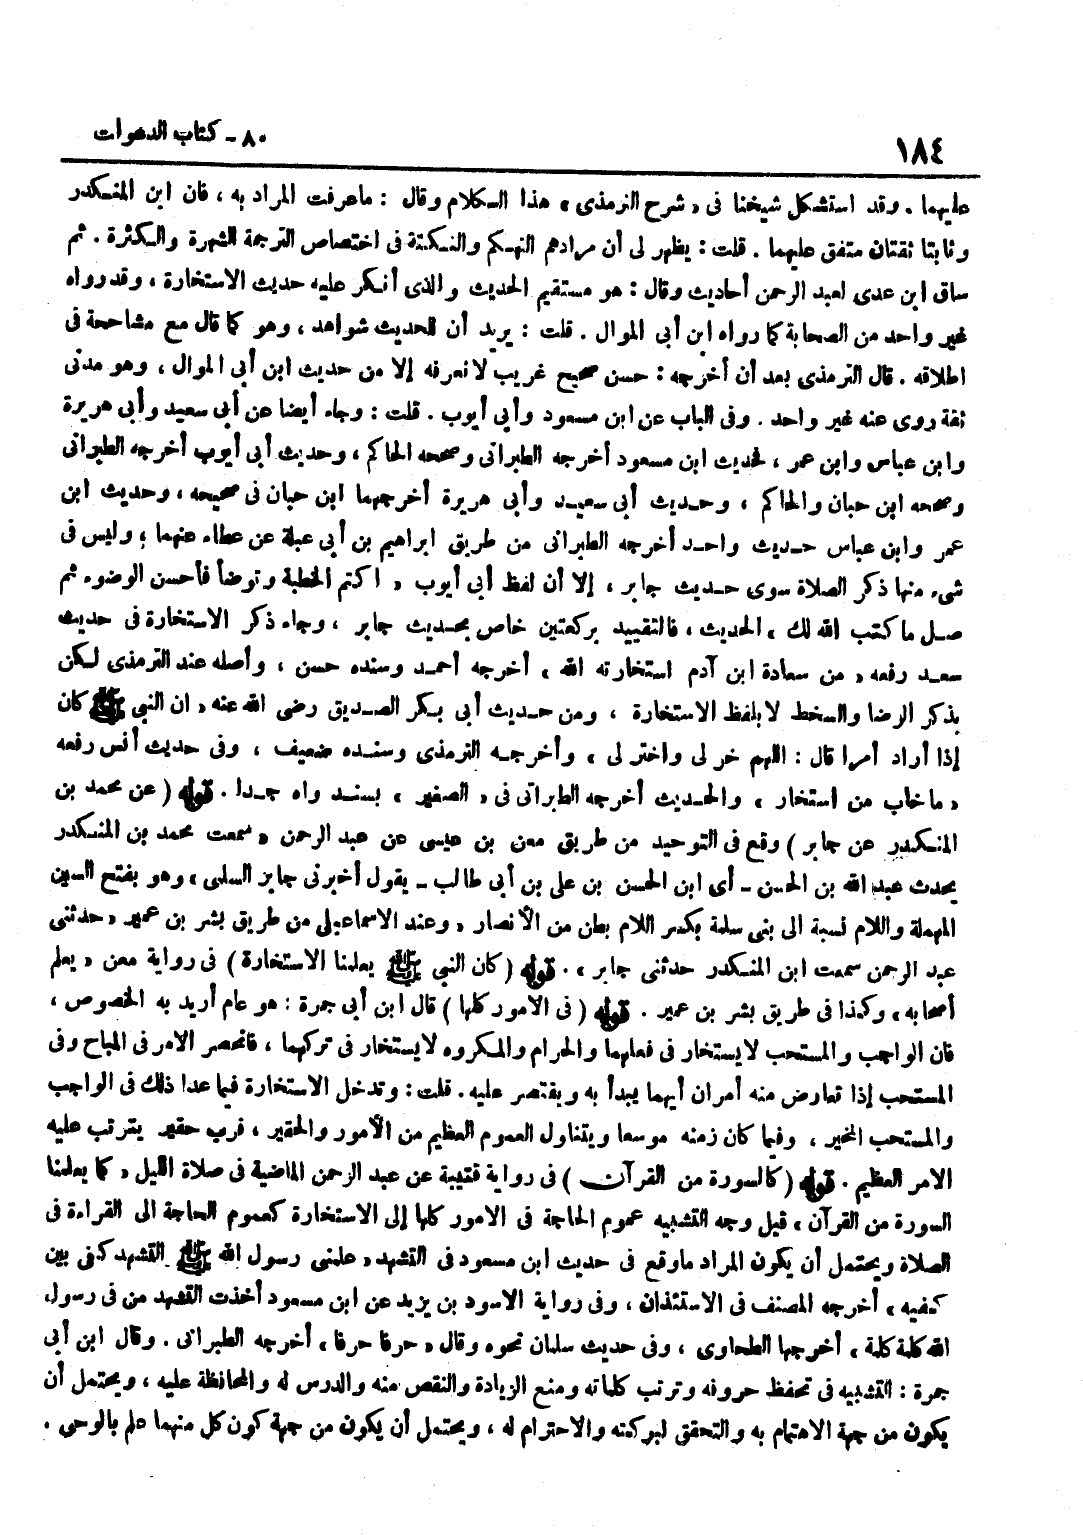 ١٨٤
٨٠ - كتاب الدعوات
عليهما . وقد استشكل شيخنا فى « شرح الترمذى » هذا الكلام وقال : ماعرفت المراد به ، فان ابن المنكدر
وثابتا ثقتان متفق عليهما . قلت : يظهر لى أن مرادهم التهكم والنكتة فى اختصاص الترجمة الشهرة والكثرة . ثم
ساق ابن عدى لعبد الرحمن أحاديث وقال : هو مستقيم الحديث والذى أنكر عليه حديث الاستخارة ، وقد رواه
غير واحد من الصحابة كما رواه ابن أبى الموال . قلت : يريد أن للحديث شواهد ، وهو كما قال مع مشاححة فى
اطلاقه . قال الترمذى بعد أن أخرجه : حسن صحيح غريب لا نعرفه إلا من حديث ابن أبى الموال ، وهو مدنى
ثقة روى عنه غير واحد . وفى الباب عن ابن مسعود وأبى أيوب . قلت : وجاء أيضا عن أبى سعيد وأبى هريرة
وابن عباس وابن عمر ، فحديث ابن مسعود أخرجه الطبرانى وصححه الحاكم ، وحديث أبى أيوب أخرجه الطبرانى
وصححه ابن حبان والحاكم ، وحديث أبى سعيد وأبى هريرة أخرجهما ابن حبان فى صحيحه ، وحديث ابن
عمر وابن عباس حديث واحد أخرجه الطبرانى من طريق ابراهيم بن أبى عبلة عن عطاء عنهما ؛ وليس فى
شىء منها ذكر الصلاة سوى حديث جابر ، إلا أن لفظ أبى أيوب « اكتم الخطبة وتوضأ فأحسن الوضوء ثم
صل ما كتب الله لك » الحديث ، فالتقييد بركعتين خاص بحديث جابر ، وجاء ذكر الاستخارة فى حديث
سعد رفعه « من سعادة ابن آدم استخارته الله » أخرجه أحمد وسنده حسن ، وأصله عند الترمذى لكن
بذكر الرضا والسخط لا بلفظ الاستخارة ، ومن حديث أبى بكر الصديق رضى الله عنه « ان النبى ﷺ كان
إذا أراد أمرا قال : اللهم خر لى واختر لى » وأخرجه الترمذى وسنده ضعيف ، وفى حديث أنس رفعه
« ما خاب من استخار » والحديث أخرجه الطبرانى فى « الصغير » بسند واه جدا . قوله ( عن محمد بن
المنكدر عن جابر ) وقع فى التوحيد من طريق معن بن عيسى عن عبد الرحمن « سمعت محمد بن المنكدر
يحدث عبد الله بن الحسن - أى ابن الحسن بن على بن أبى طالب - يقول أخبرنى جابر السلمى » وهو بفتح السين
المهملة واللام نسبة الى بنى سلمة بكسر اللام بطن من الأنصار ، وعند الاسماعيلى من طريق بشر بن عمير « حدثنى
عبد الرحمن سمعت ابن المنكدر حدثنى جابر » . قوله ( كان النبى ﷺ يعلمنا الاستخارة ) فى رواية معن « يعلم
أصحابه » وكذا فى طريق بشر بن عمير . قوله ( فى الامور كلها ) قال ابن أبى جمرة : هو عام أريد به الخصوص ،
فان الواجب والمستحب لا يستخار فى فعلهما والحرام والمكروه لا يستخار فى تركهما ، فانحصر الامر فى المباح وفى
المستحب إذا تعارض منه أمران أيهما يبدأ به ويقتصر عليه . قلت : وتدخل الاستخارة فيما عدا ذلك فى الواجب
والمستحب المخير ، وفيما كان زمنه موسعا ويتناول العموم العظيم من الأمور والحقير ، فرب حقير يترتب عليه
الامر العظيم . قوله ( كالسورة من القرآن ) فى رواية قتيبة عن عبد الرحمن الماضية فى صلاة الليل « كما يعلمنا
السورة من القرآن » قيل وجه التشبيه عموم الحاجة فى الامور كلها إلى الاستخارة كعموم الحاجة الى القراءة فى
الصلاة ويحتمل أن يكون المراد ماوقع فى حديث ابن مسعود فى التشهد « علمنى رسول الله ﷺ التشهد كفى بين
كفيه » أخرجه المصنف فى الاستئذان ، وفى رواية الاسود بن يزيد عن ابن مسعود أخذت التشهد من فى رسول
الله كلمة كلمة » أخرجها الطحاوى ، وفى حديث سلمان نحوه وقال « حرفا حرفا » أخرجه الطبرانى . وقال ابن أبى
جمرة : التشبيه فى تحفظ حروفه وترتب كلماته ومنع الزيادة والنقص منه والدرس له والمحافظة عليه ، ويحتمل أن
يكون من جهة الاهتمام به والتحقق لبركته والاحترام له ، ويحتمل أن يكون من جهة كون كل منهما علم بالوحى .